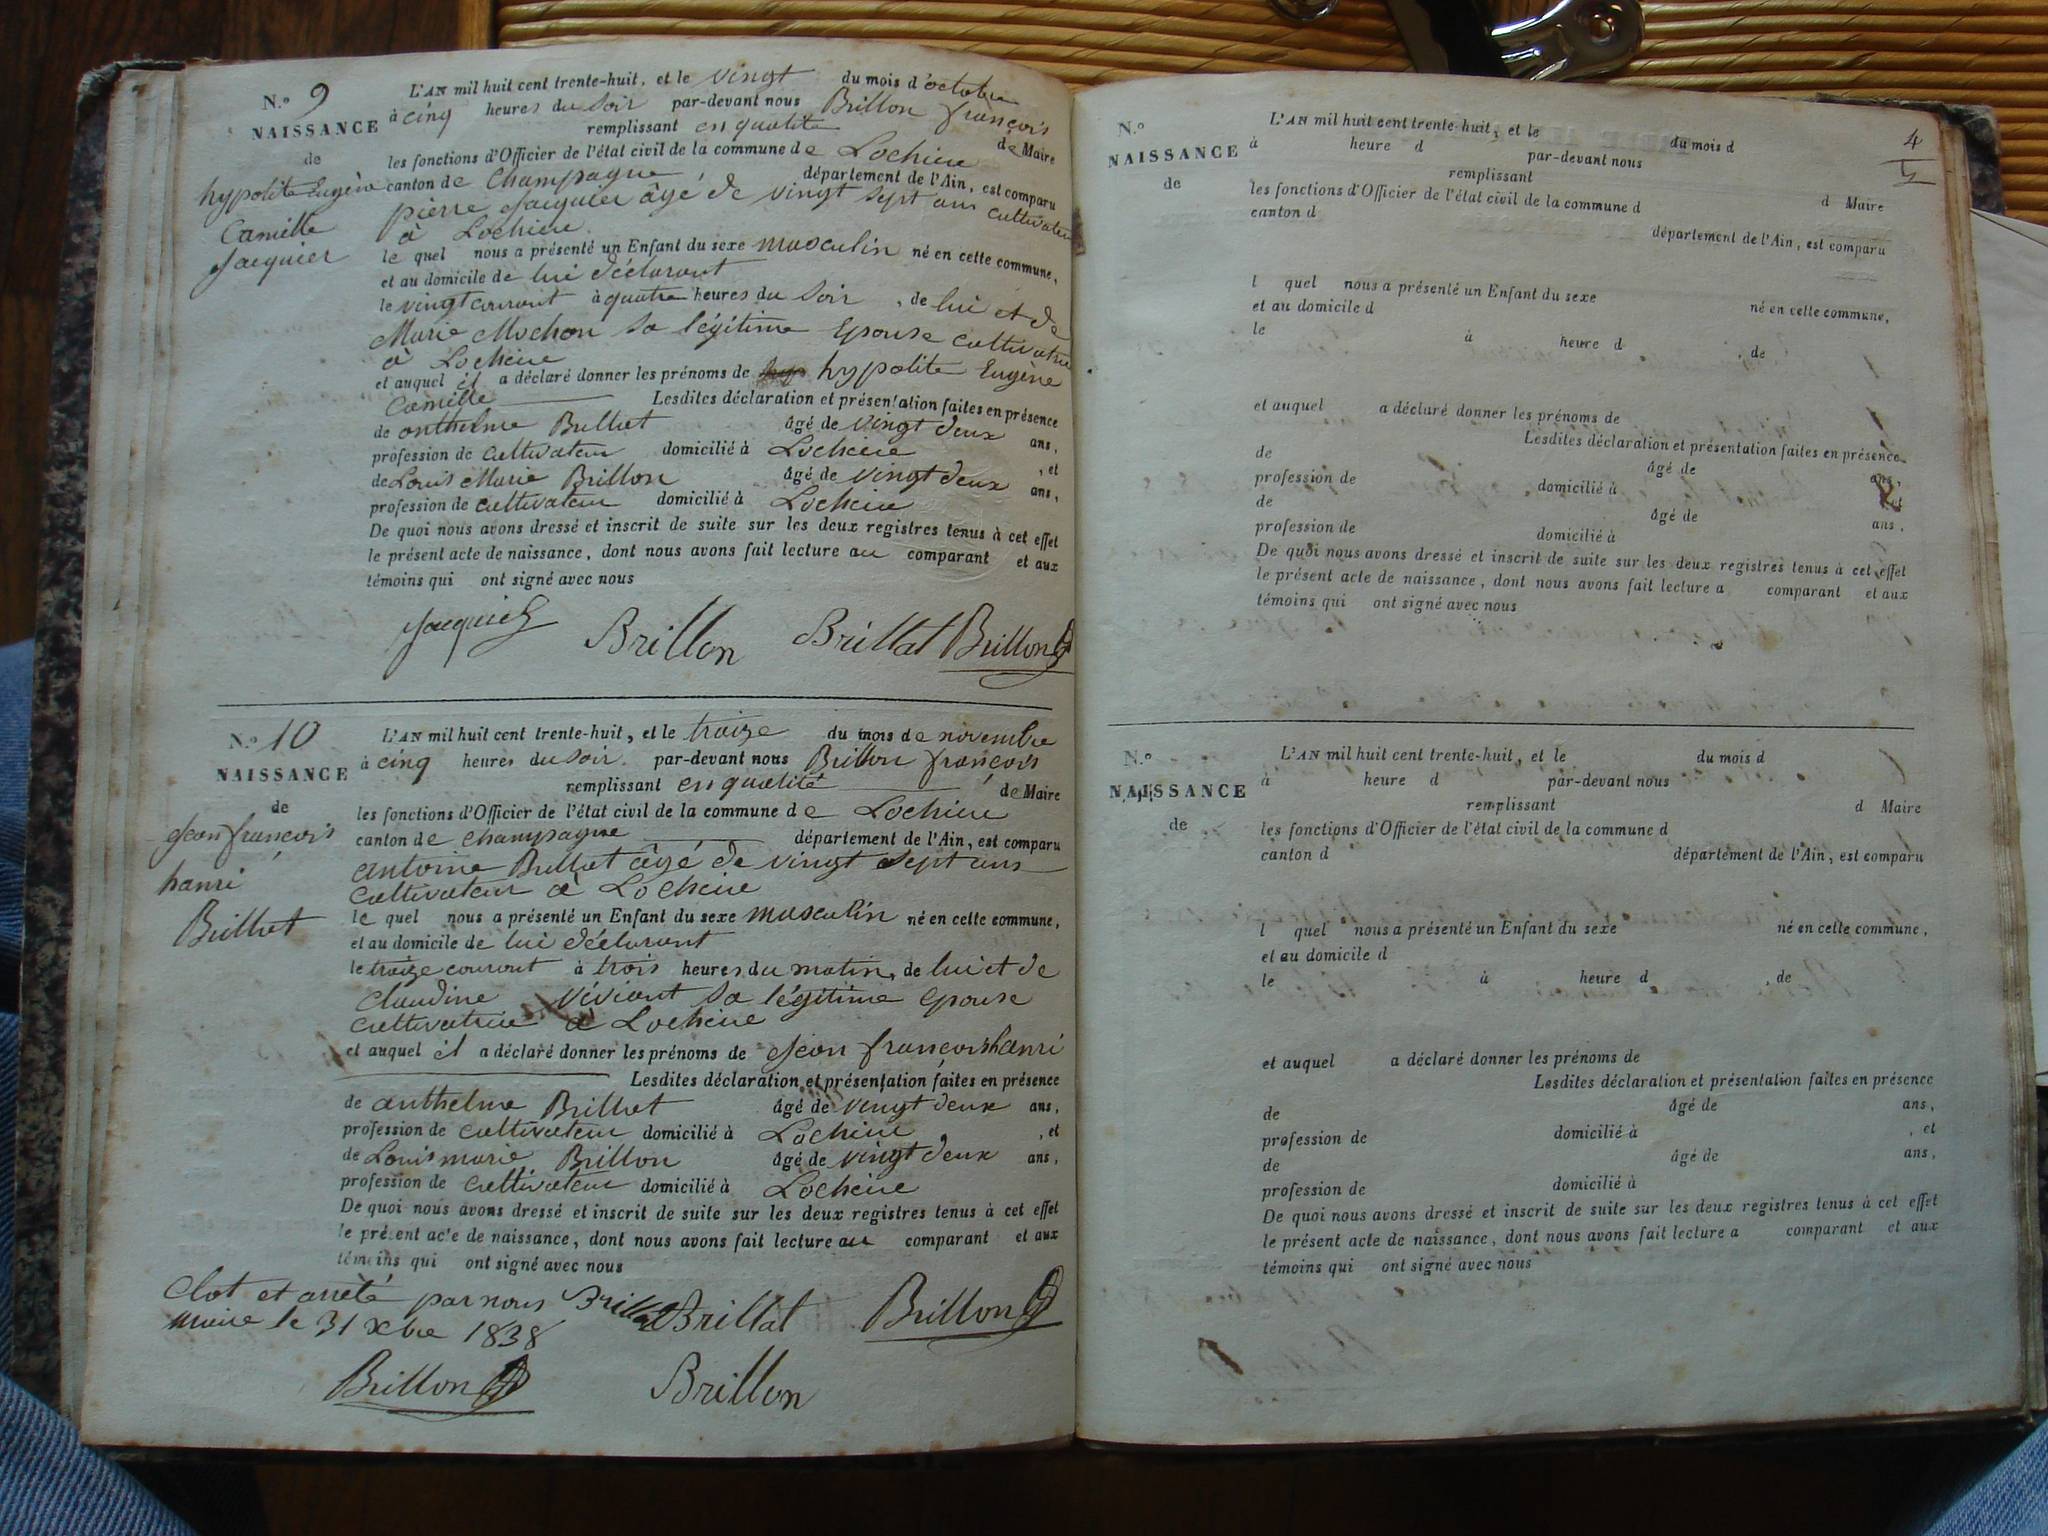 N.º 9
NAISSANCE
de
hypolite Eugène
Camille
Jacquier
L'AN mil huit cent trente-huit, et le vingt du mois d'octobre
à cinq heures du soir par-devant nous Brillon françois
remplissant en qualité de Maire
les fonctions d'Officier de l'état civil de la commune de Lochieu
canton de Champagne département de l'Ain, est comparu
pierre Jacquier âgé de vingt sept ans cultivateur
à Lochieu
le quel nous a présenté un Enfant du sexe masculin né en cette commune,
et au domicile de lui déclarant
le vingt courant à quatre heures du soir, de lui et de
Marie Mochon sa légitime Epouse cultivatrice
à Lochieu
et auquel il a déclaré donner les prénoms de hypolite Eugène
Camille Lesdites déclaration et présentation faites en présence
de anthelme Brillat âgé de vingt deux ans,
profession de cultivateur domicilié à Lochieu, et
de Louis Marie Brillon âgé de vingt deux ans,
profession de cultivateur domicilié à Lochieu
De quoi nous avons dressé et inscrit de suite sur les deux registres tenus à cet effet
le présent acte de naissance, dont nous avons fait lecture au comparant et aux
témoins qui ont signé avec nous
Jacquier Brillon Brillat Brillon
N.º 10
NAISSANCE
de
Jean françois
hanri
Brillat
L'AN mil huit cent trente-huit, et le traize du mois de novembre
à cinq heures du soir par-devant nous Brillon françois
remplissant en qualité de Maire
les fonctions d'Officier de l'état civil de la commune de Lochieu
canton de champagne département de l'Ain, est comparu
antoine Brillat âgé de vingt sept ans
cultivateur à Lochieu
le quel nous a présenté un Enfant du sexe masculin né en cette commune,
et au domicile de lui déclarant
le traize courant à trois heures du matin, de lui et de
Claudine Viviant sa légitime epouse
cultivatrice à Lochieu
et auquel il a déclaré donner les prénoms de Jean françois hanri
Lesdites déclaration et présentation faites en présence
de anthelme Brillat âgé de vingt deux ans,
profession de cultivateur domicilié à Lochieu, et
de Louis marie Brillon âgé de vingt deux ans,
profession de cultivateur domicilié à Lochieu
De quoi nous avons dressé et inscrit de suite sur les deux registres tenus à cet effet
le présent acte de naissance, dont nous avons fait lecture au comparant et aux
témoins qui ont signé avec nous
Clot et arrêté par nous Brillat Brillat Brillon
maire le 31 xbre 1838
Brillon Brillon
4
N.º
NAISSANCE
de
L'AN mil huit cent trente-huit, et le du mois d
à heure d par-devant nous
remplissant d Maire
les fonctions d'Officier de l'état civil de la commune d
canton d département de l'Ain, est comparu
l quel nous a présenté un Enfant du sexe né en cette commune,
et au domicile d
le à heure d , de
et auquel a déclaré donner les prénoms de
Lesdites déclaration et présentation faites en présence
de âgé de ans,
profession de domicilié à , et
de âgé de ans,
profession de domicilié à
De quoi nous avons dressé et inscrit de suite sur les deux registres tenus à cet effet
le présent acte de naissance, dont nous avons fait lecture a comparant et aux
témoins qui ont signé avec nous
N.º
NAISSANCE
de
L'AN mil huit cent trente-huit, et le du mois d
à heure d par-devant nous
remplissant d Maire
les fonctions d'Officier de l'état civil de la commune d
canton d département de l'Ain, est comparu
l quel nous a présenté un Enfant du sexe né en cette commune,
et au domicile d
le à heure d , de
et auquel a déclaré donner les prénoms de
Lesdites déclaration et présentation faites en présence
de âgé de ans,
profession de domicilié à , et
de âgé de ans,
profession de domicilié à
De quoi nous avons dressé et inscrit de suite sur les deux registres tenus à cet effet
le présent acte de naissance, dont nous avons fait lecture a comparant et aux
témoins qui ont signé avec nous